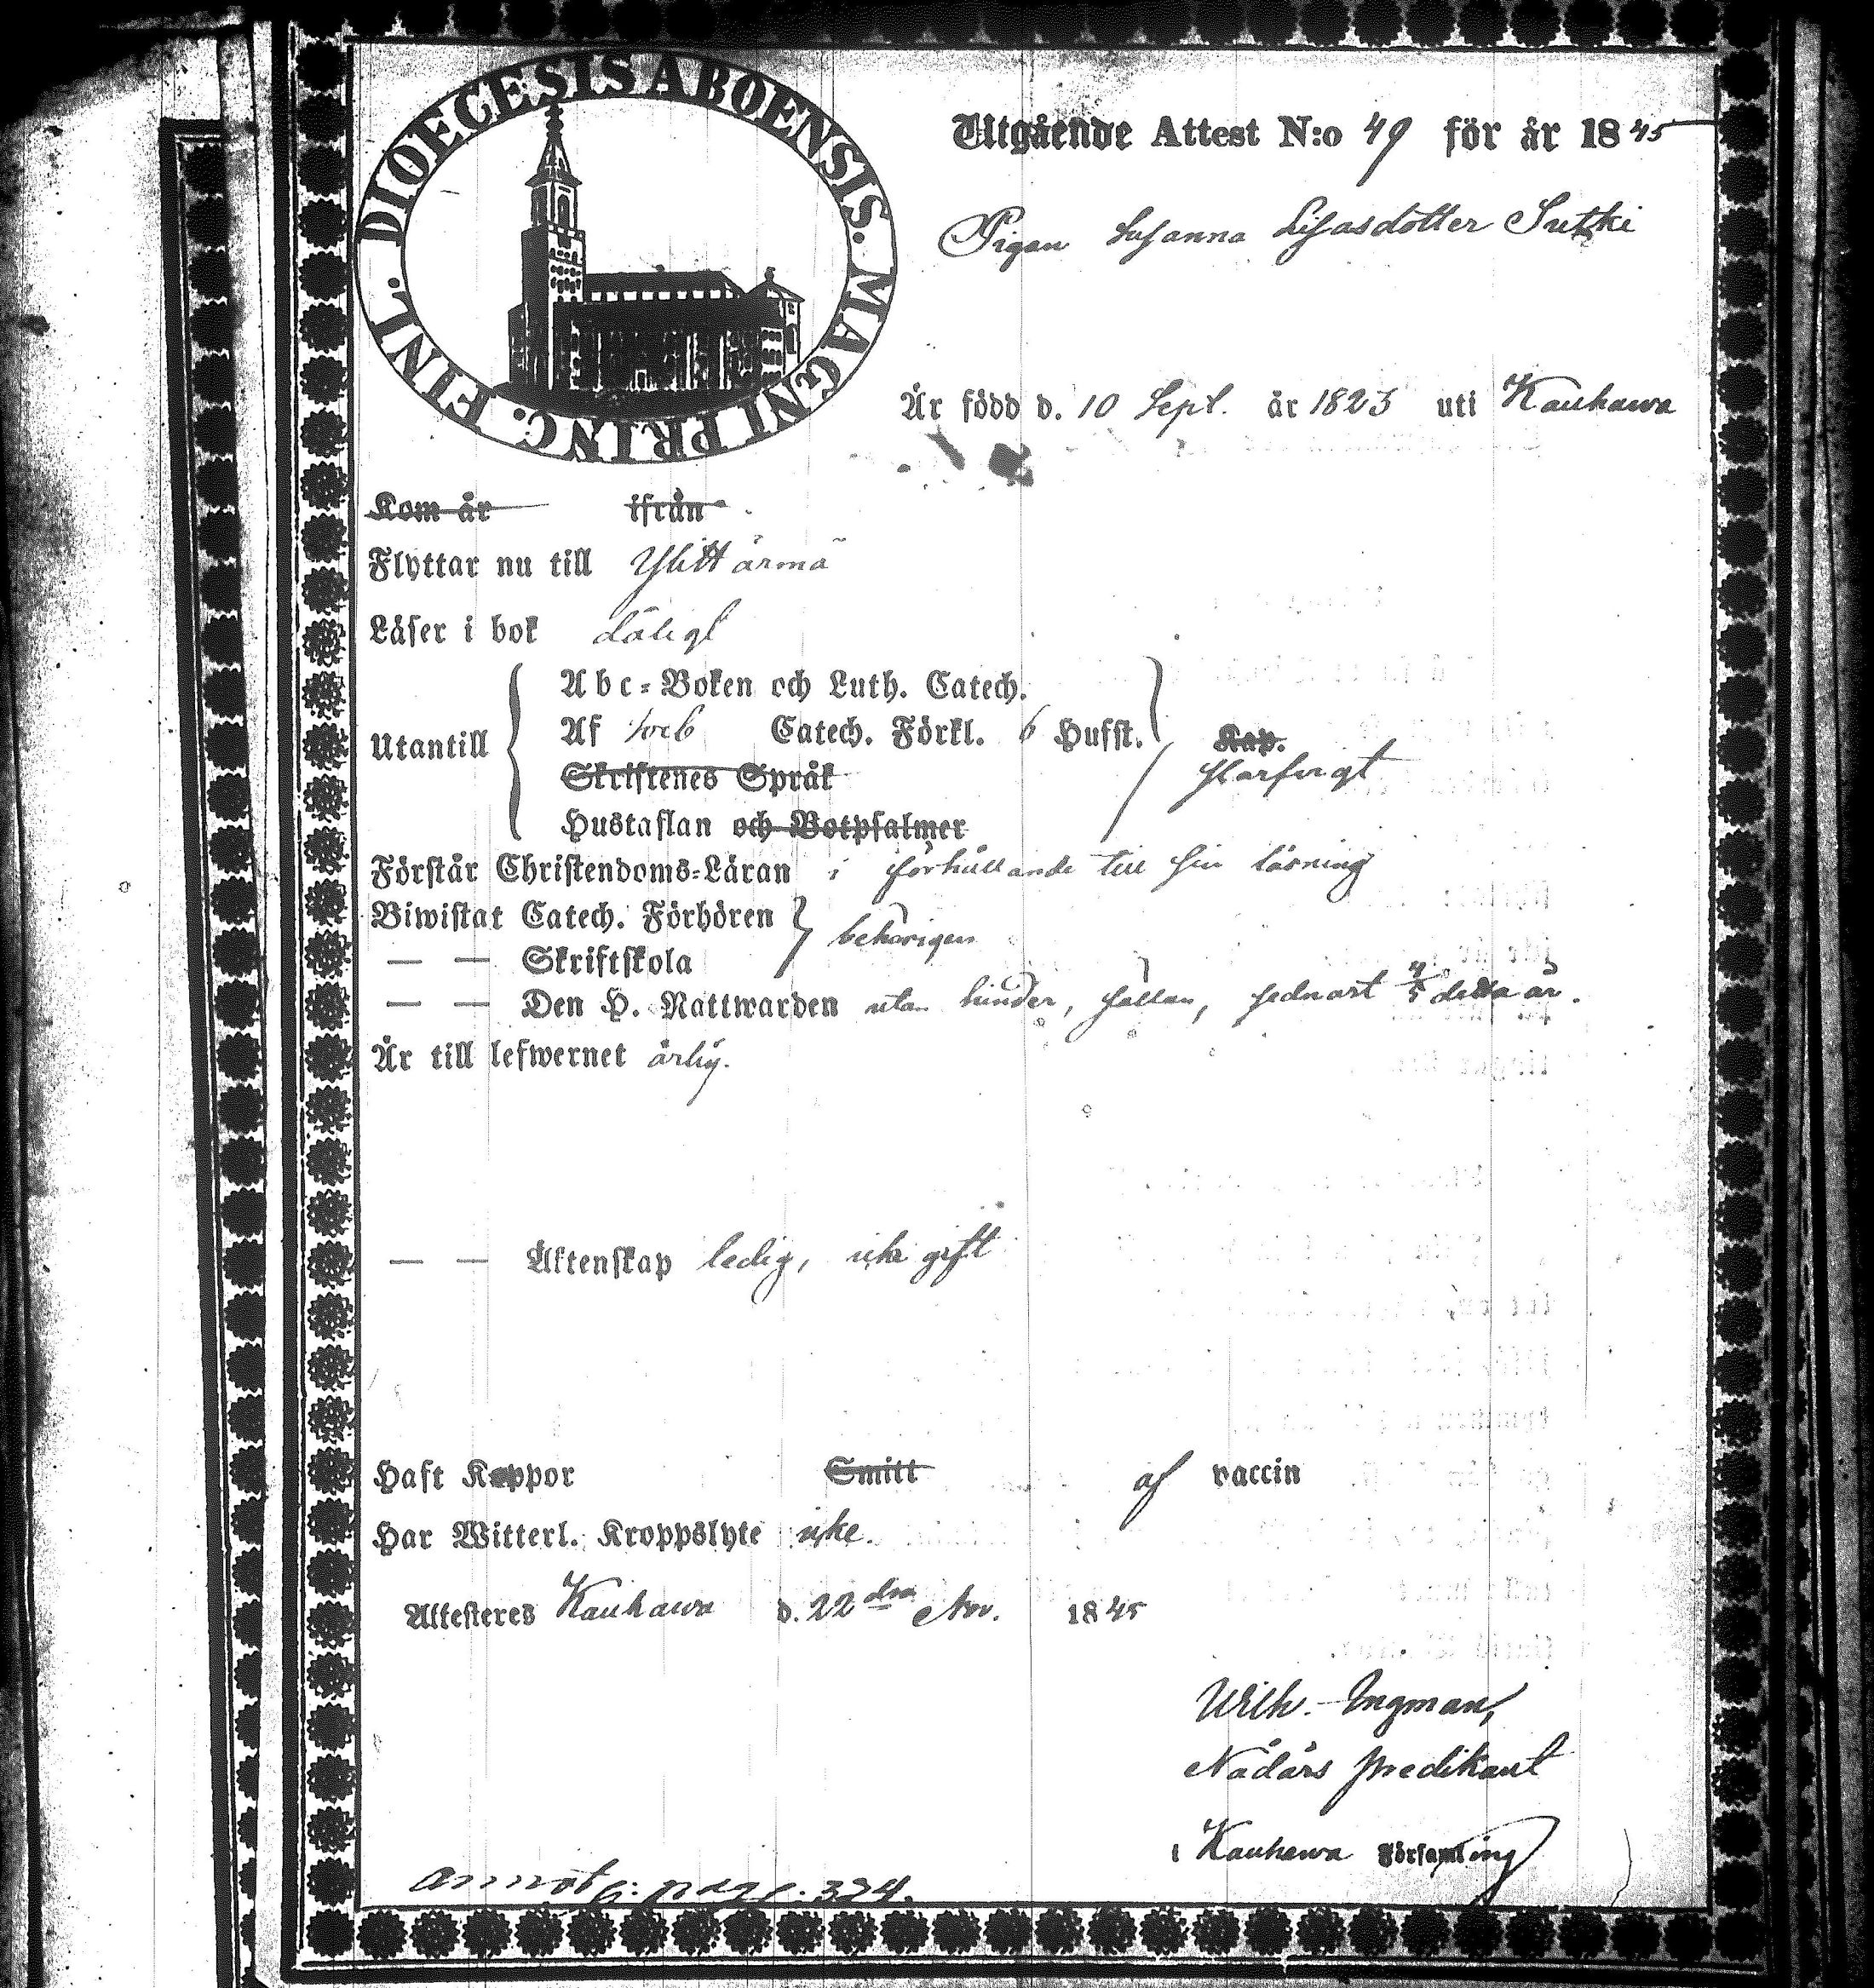 DIOECESIS ABOENSIS. MAGNI PRINC. FINL.
Utgående Attest N:o 49 för år 1845
Pigan Susanna Lisasdotter
Är född d. 10 Sept. år 1823 uti Kauhawa
Kom år ifrån
Flyttar nu till Ylihärmä
Läser i bok dåligt
Utantill
Abc-Boken och Luth. Catech.
Af Catech. Förkl. 6 Hufst.
Kap.
Skriftenes Språk
Hustaflan och Botpsalmer
Förstår Christendoms-Läran i förhållande till sin läsning
Biwistat Catech. Förhören
behörigen
— — Skriftskola
— — Den H. Nattwarden utan hinder, sednast 4/5 detta år.
Är till lefwernet ärlig.
— — Äktenskap ledig, icke gift
Haft Koppor Smitt af vaccin
Har Witterl. Kroppslyte icke.
Attesteres Kauhawa d. 22 dra Nov. 1845
Wilh. Ingman,
Nådårs predikant
i Kauhawa Församling
annot. page. 324.